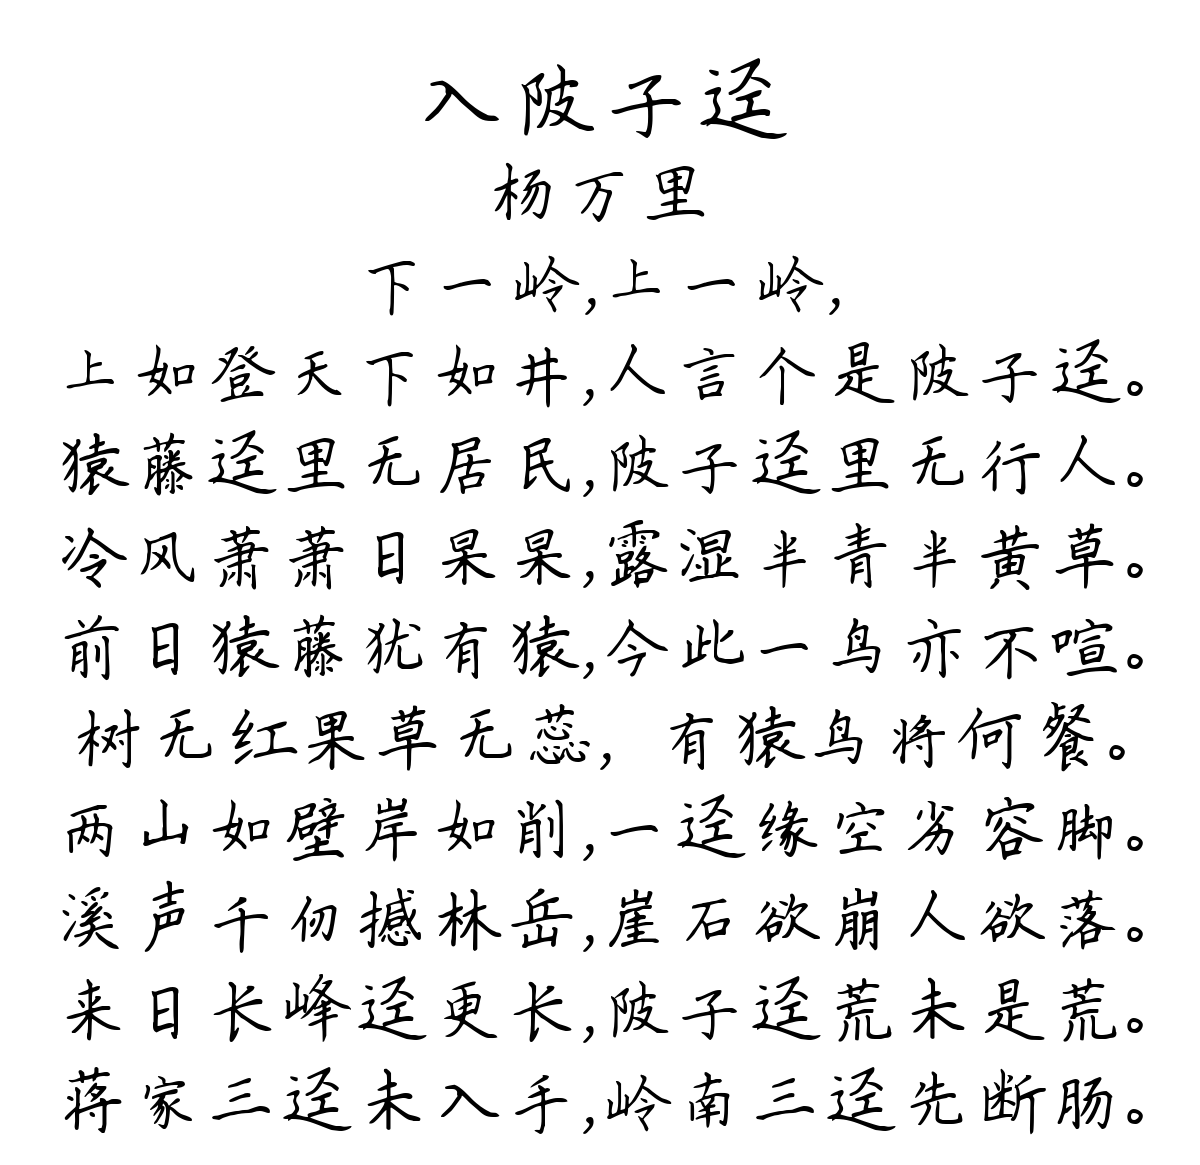 入陂子迳
杨万里
下一岭,上一岭,
上如登天下如井,人言个是陂子迳。
猿藤迳里无居民,陂子迳里无行人。
冷风萧萧日杲杲,露湿半青半黄草。
前日猿藤犹有猿,今此一鸟亦不喧。
树无红果草无蕊,有猿鸟将何餐。
两山如壁岸如削,一迳缘空劣容脚。
溪声千仞撼林岳,崖石欲崩人欲落。
来日长峰迳更长,陂子迳荒未是荒。
蒋家三迳未入手,岭南三迳先断肠。